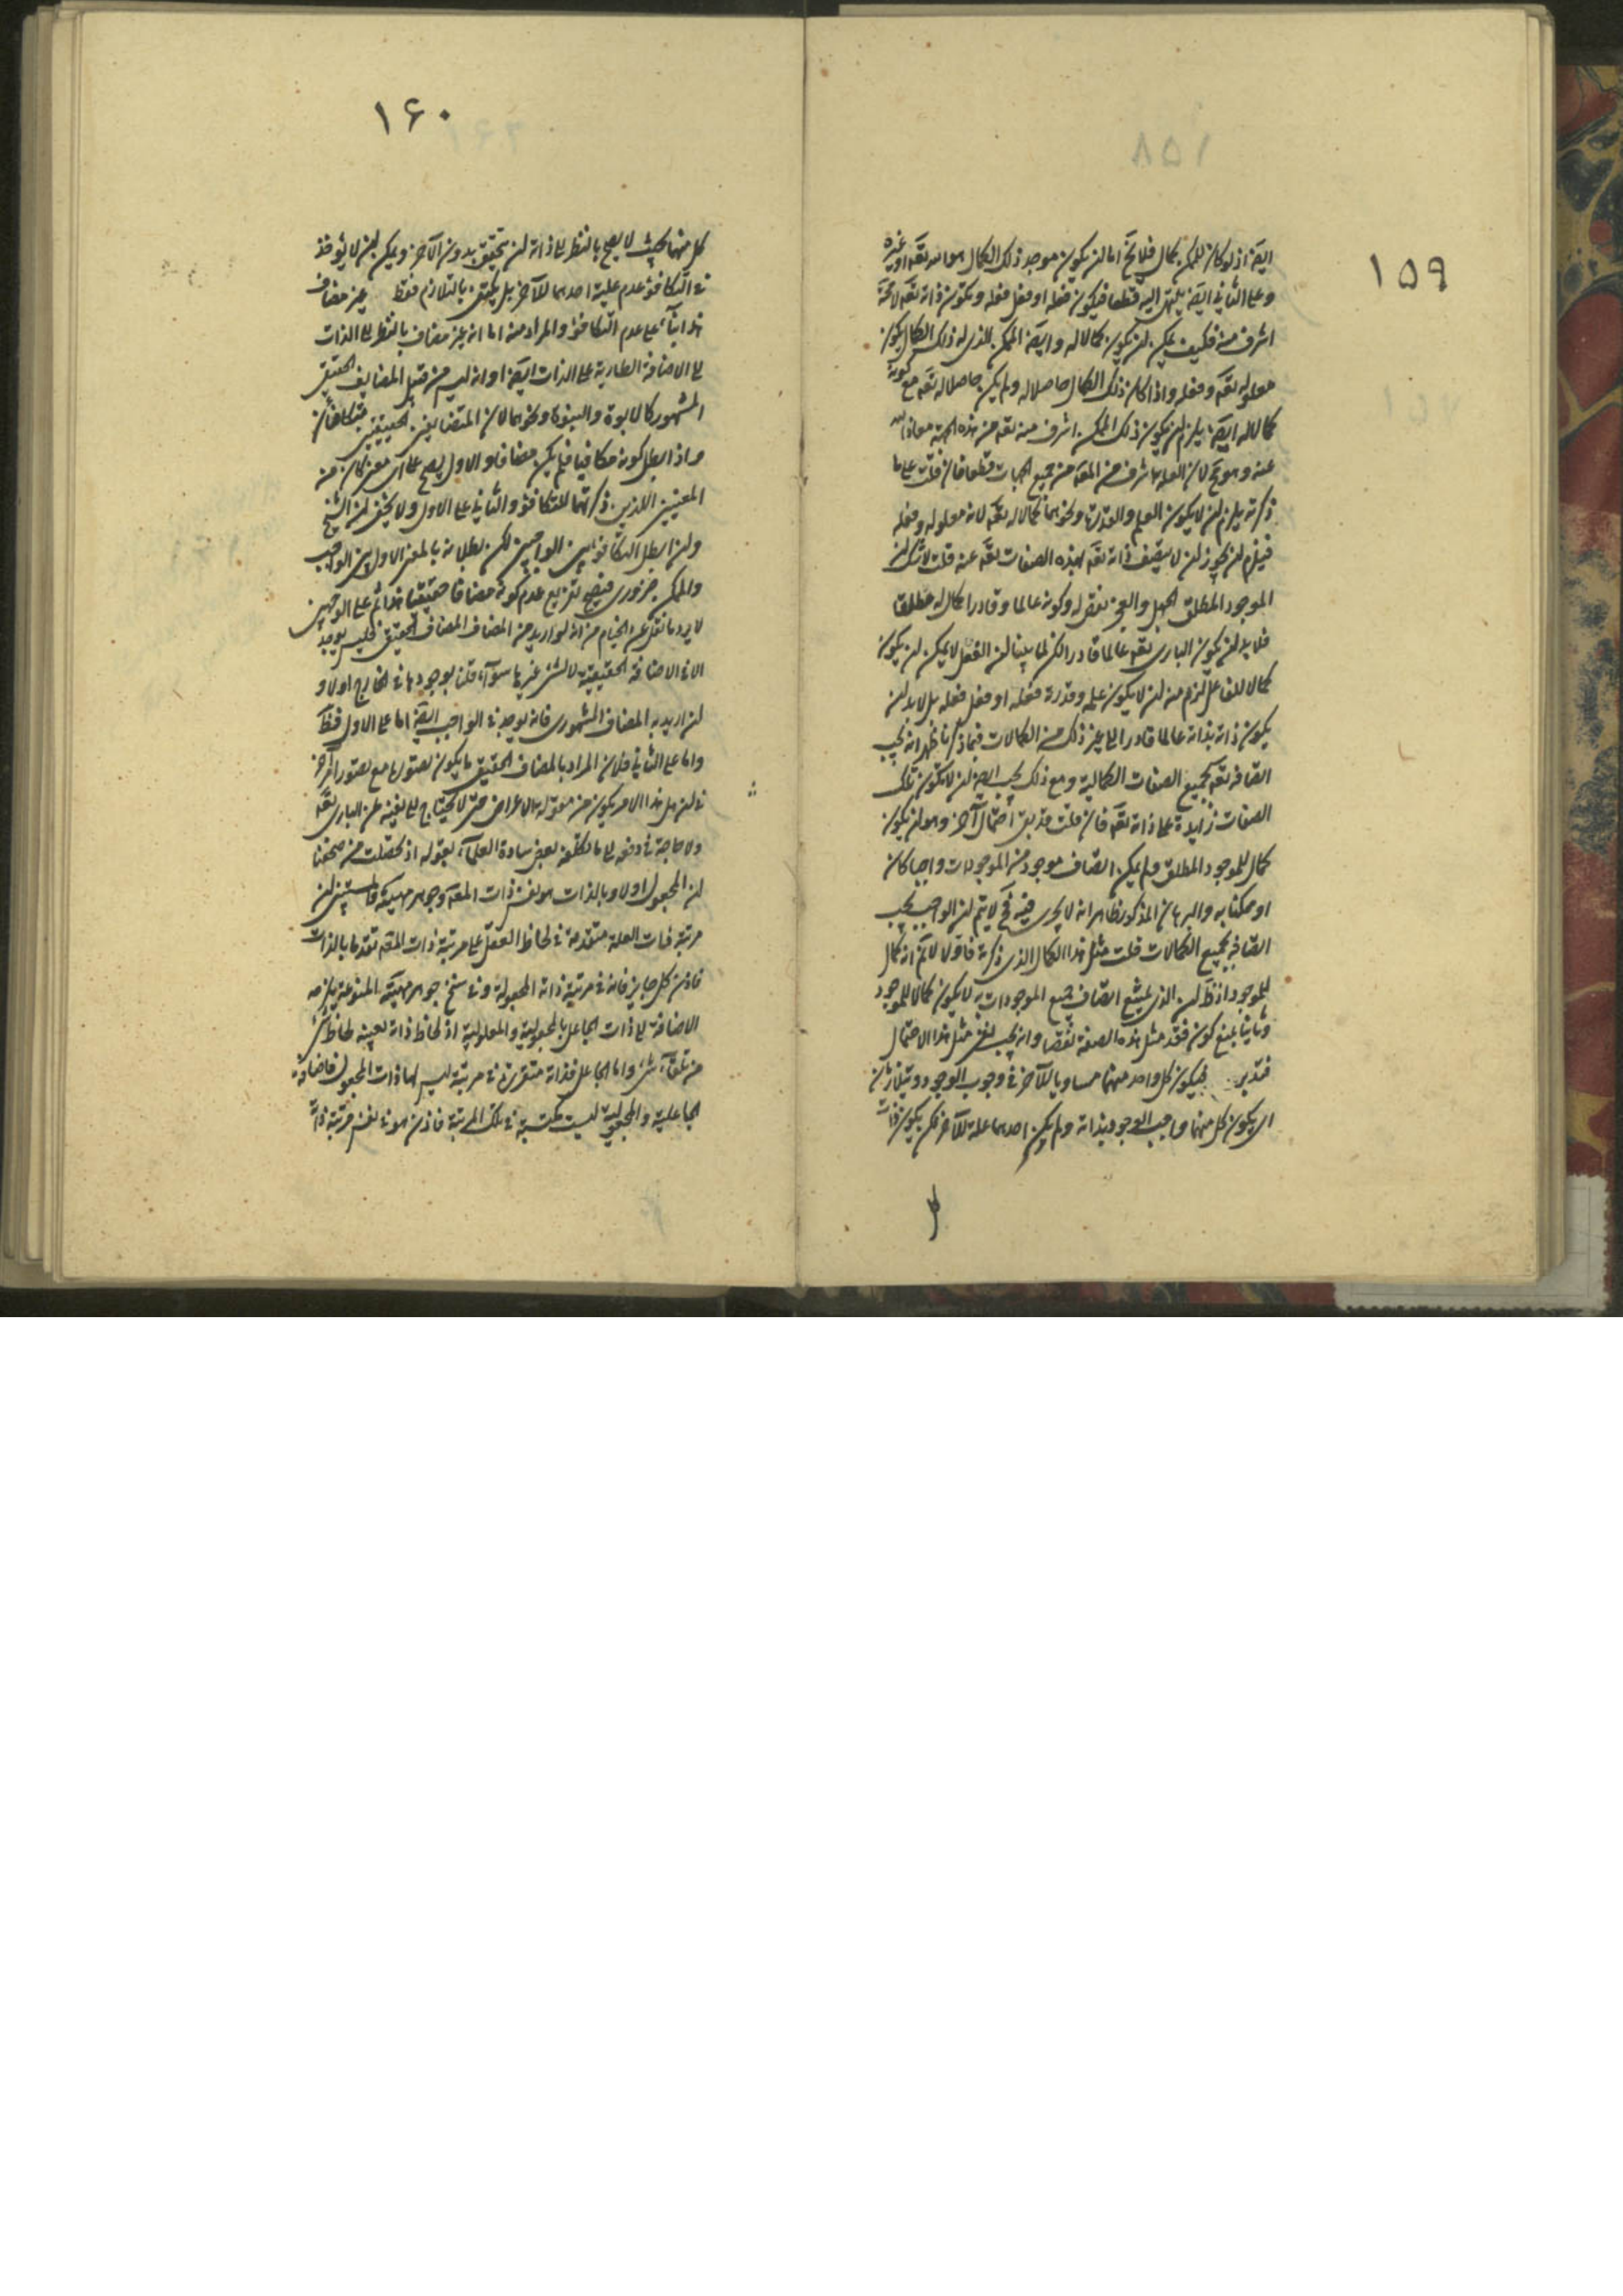 ١٥٩
ايضا اذ لو كان للممكن كمال فلا يخ اما ان يكون موجد ذلك الكمال هو الله تعه او غيره
وعلى الثاني ايضا ينتهى اليه قطعا فيكون فعله او فعل فعله ويكون ذاته تعه لا محة
اشرف منه فكيف يمكن ان يكون كمالا له وايضا الممكن الذى له ذلك الكمال يكون
معلوله تعه وفعله واذا كان ذلك الكمال حاصلا له ولم يكن حاصلا له تعه مع كونه
كمالا له ايضا يلزم ان يكون ذلك الممكن اشرف منه تعه من هذه الجهة معاذ الله
عنه وهو مح لان العلة اشرف من المعه من جميع الجهات قطعا فان قلت على ما
ذكرته يلزم ان لا يكون العلم والقدرة ونحوهما كمالا له تعه لانه معلوله وفعله
فيلزم ان يجوز ان لا يتصف ذاته تعه بهذه الصفات تعه عنه قلت لا شك ان
الموجود المطلق الجهل والعجز نقص له وكونه عالما وقادرا كمال له مطلقا
فلا بد ان يكون البارى تعه عالما قادرا لكن لما بينا ان الفعل لا يمكن ان يكون
كمالا للفاعل لزم منه ان لا يكون علمه وقدرته فعله او فعل فعله بل لا بد ان
يكون ذاته بذاته عالما قادرا الى غير ذلك من الكمالات فبما ذكرنا ظهر انه يجب
اتصافه تعه بجميع الصفات الكمالية ومع ذلك يجب ايضا ان لا يكون تلك
الصفات زايدة على ذاته تعه فان قلت قد بقى احتمال آخر وهو ان يكون
كمال للموجود المطلق ولم يمكن اتصاف موجود من الموجودات واجبا كان
او ممكنا به والبرهان المذكور ظاهر انه لا يجرى فيه فح لا يتم ان الواجب يجب
اتصافه بجميع الكمالات قلت مثل هذا الكمال الذى ذكرته فاقول لا نم انه كمال
للموجود اذ ظ ان الذى يمتنع اتصاف جميع الموجودات به لا يكون كمالا للموجود
وثانيا بمنع كون فقد مثل هذه الصفة نقصا وانه يجب نفى مثل هذا الاحتمال
فتدبر فيكون كل واحد منهما مساويا للآخر في وجوب الوجود ويتلازمان
اى يكون كل منهما واجب الوجود بذاته ولم يكن احدهما علة للآخر لكن يكون ذات
١۶٠
كل منهما بحيث لا يصح بالنظر الى ذاته ان يتحقق بدون الآخر ويمكن ان لا يؤخذ
في التكافؤ عدم علية احدهما للآخر بل يكتفى بالتلازم فقط غير مضاف
هذا بناء على عدم التكافؤ والمراد منه اما انه غير مضاف بالنظر الى الذات
الى الاضافة الطارية على الذات ايضا او انه ليس من قبيل المضايف الحقيقى
المشهور كالابوة والبنوة ونحوهما لان المتضايفين الحقيقيين متكافئان
واذا بطل كونه مكافيا فلم يكن مضافا والاول يصح على اى معنى كان من
المعنيين اللذين ذكرتهما للتكافؤ والثاني على الاول ولا يخفى ان الشيخ
وان ابطل التكافؤ بين الواجبين لكن بطلانه بالمعنى الاول بين الواجب
والممكن ضرورى فيصح تفريع عدم كونه مضافا حقيقيا هذا ثم على الوجهين
لا يرد ما نقل عن الخيام من انه لو اريد من المضاف المضاف الحقيقى فليس يوجد
الا في الاضافة الحقيقية لا لشئ غيرها سواء قلنا بوجودها في الخارج اولا و
ان اريد به المضاف المشهورى فانه يوجد في الواجب ايضا اما على الاول فظ
واما على الثاني فلان المراد بالمضاف الحقيقى ما يكون تصورها مع تصور امر آخر
في ان هل هذا الامر يكون من مقولة الاعراض حتى لا يحتاج الى نفيه عن البارى تعه
ولا حاجة في دفعه الى ما تكلفه بعض سادة العلماء بقوله اذ تحصلت من صحفنا
ان المجعول اولا وبالذات هو نفس ذات المعه وجوهر مهيته فاستيقن ان
مرتبة ذات العلة متقدمة في لحاظ العقل على مرتبة ذات المعه تقدما بالذات
فاذن كل جايز فانه في مرتبة ذاته المجعولة وفي سنخ جوهر مهيته المنوعة يلزمه
الاضافة الى ذات الجاعل بالمجعولية والمعلولية اذ لحاظ ذاته بعينه لحاظ شئ
من تلقاء شئ واما الجاعل فذاته متقررة في مرتبة ليس لها ذات المجعول فاضافة
الجاعلية والمجعولية ليست مكتسبة في تلك المرتبة فاذن هو في نفس مرتبة ذاته